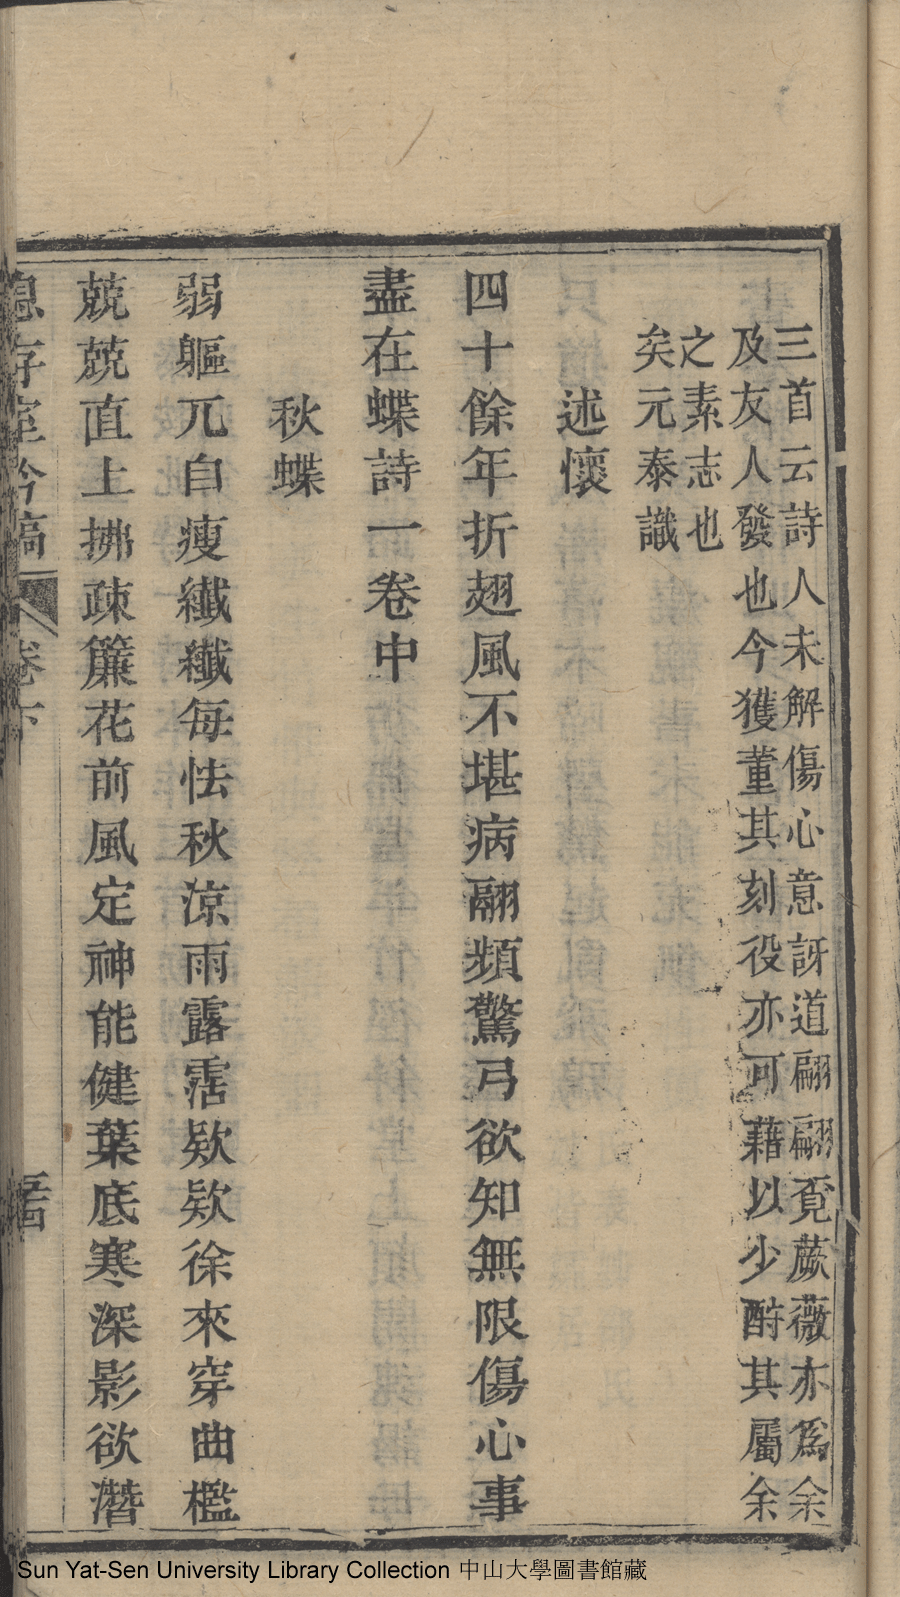 三首云詩人未解傷心意訝道翩翩覔蕨薇亦爲余
及友人發也今獲董其刻役亦可藉以少酧其屬余
之素志也
矣元泰識
述懷
四十餘年折翅風不堪病翮頻驚弓欲知無限傷心事
盡在蝶詩一卷中
秋蝶
弱軀兀自瘦纖纖每怯秋涼雨露霑欵欵徐來穿曲檻
兢兢直上拂疎簾花前風定神能健葉底寒深影欲潛
卷下
Sun Yat-Sen University Library Collection 中山大學圖書館藏